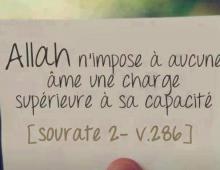 Allah n'impose à aucune
âme une charge
supérieure à sa capacité
[sourate 2- v.286]